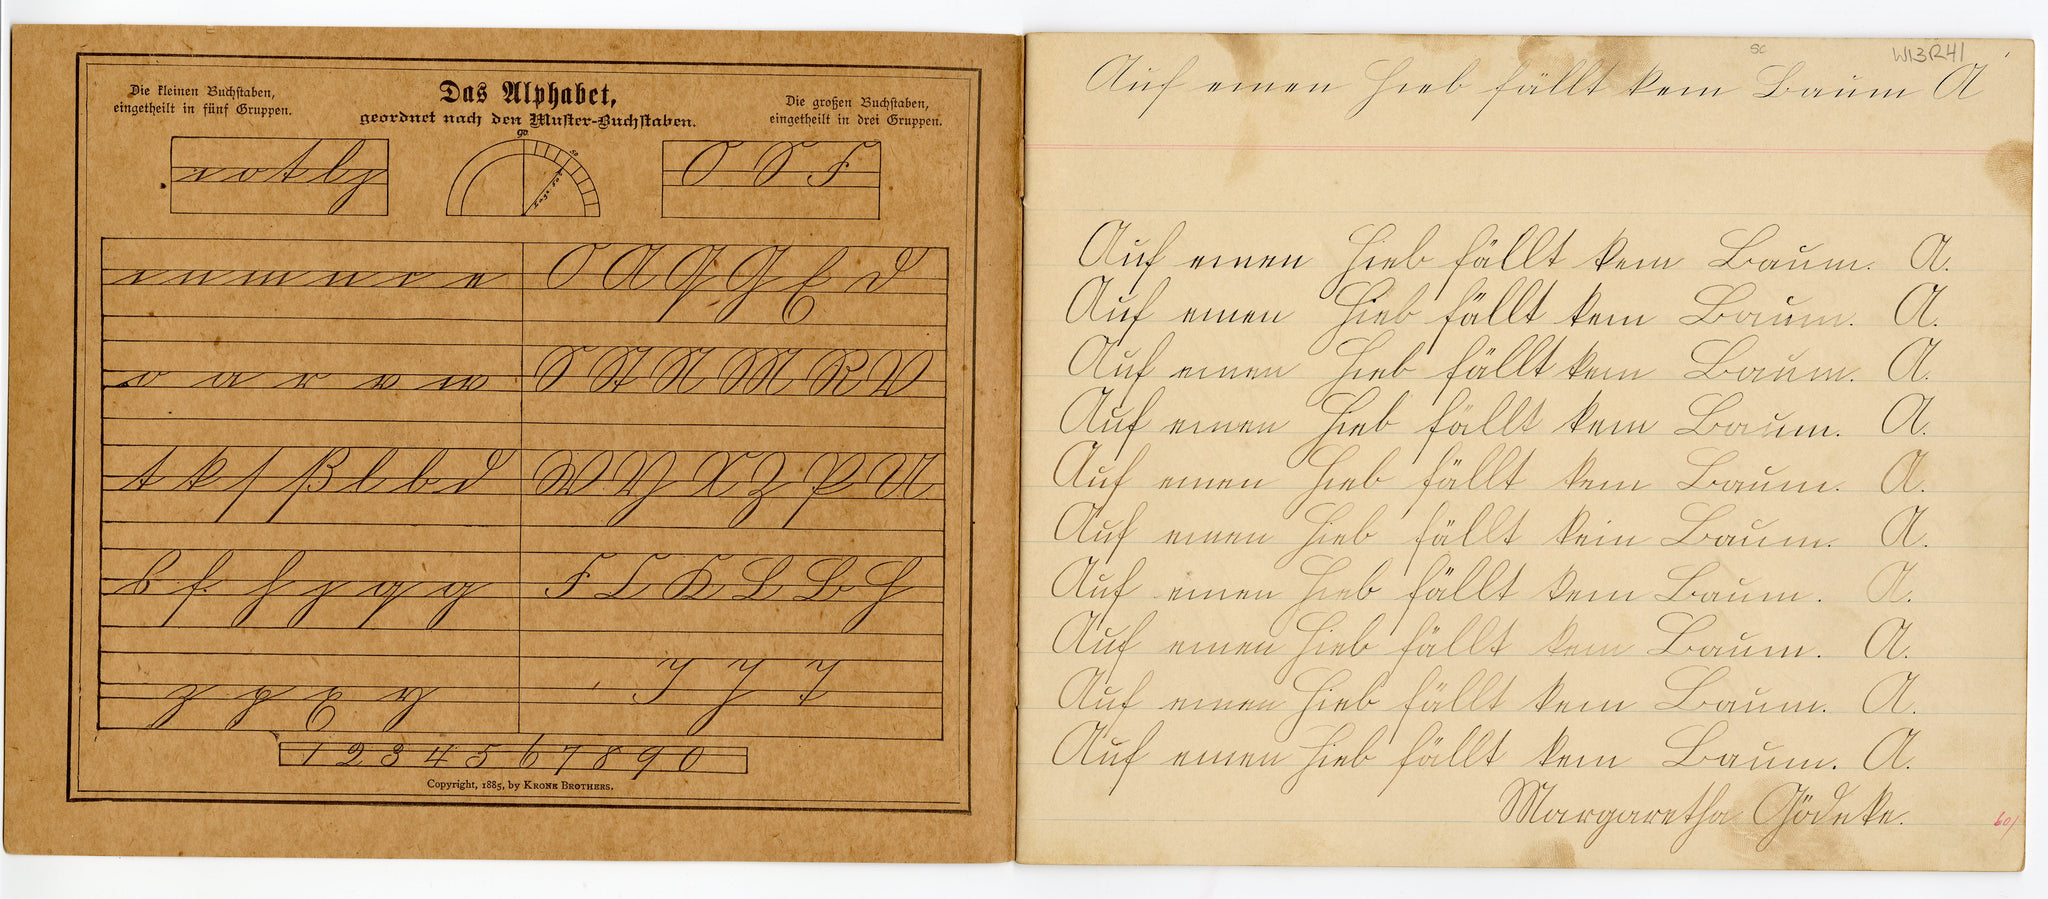 Die kleinen Buchstaben,
eingetheilt in fünf Gruppen.
Das Alphabet,
geordnet nach den Muster-Buchstaben.
Die großen Buchstaben,
eingetheilt in drei Gruppen.
90
50
O S F
O A Q G E D
S St N M R V
t k ſ ß l b d
W Y X Z P U
F T K L B H
z p x y
I J T
1 2 3 4 5 6 7 8 9 0
Copyright, 1885, by KRONE BROTHERS.
sc
W13R41
Auf einen Hieb fällt kein Baum A
Auf einen Hieb fällt kein Baum. A.
Auf einen Hieb fällt kein Baum. A.
Auf einen Hieb fällt kein Baum. A.
Auf einen Hieb fällt kein Baum. A.
Auf einen Hieb fällt kein Baum. A.
Auf einen Hieb fällt kein Baum. A.
Auf einen Hieb fällt kein Baum. A.
Auf einen Hieb fällt kein Baum. A.
Auf einen Hieb fällt kein Baum. A.
Auf einen Hieb fällt kein Baum. A.
Margaretha Gödeke.